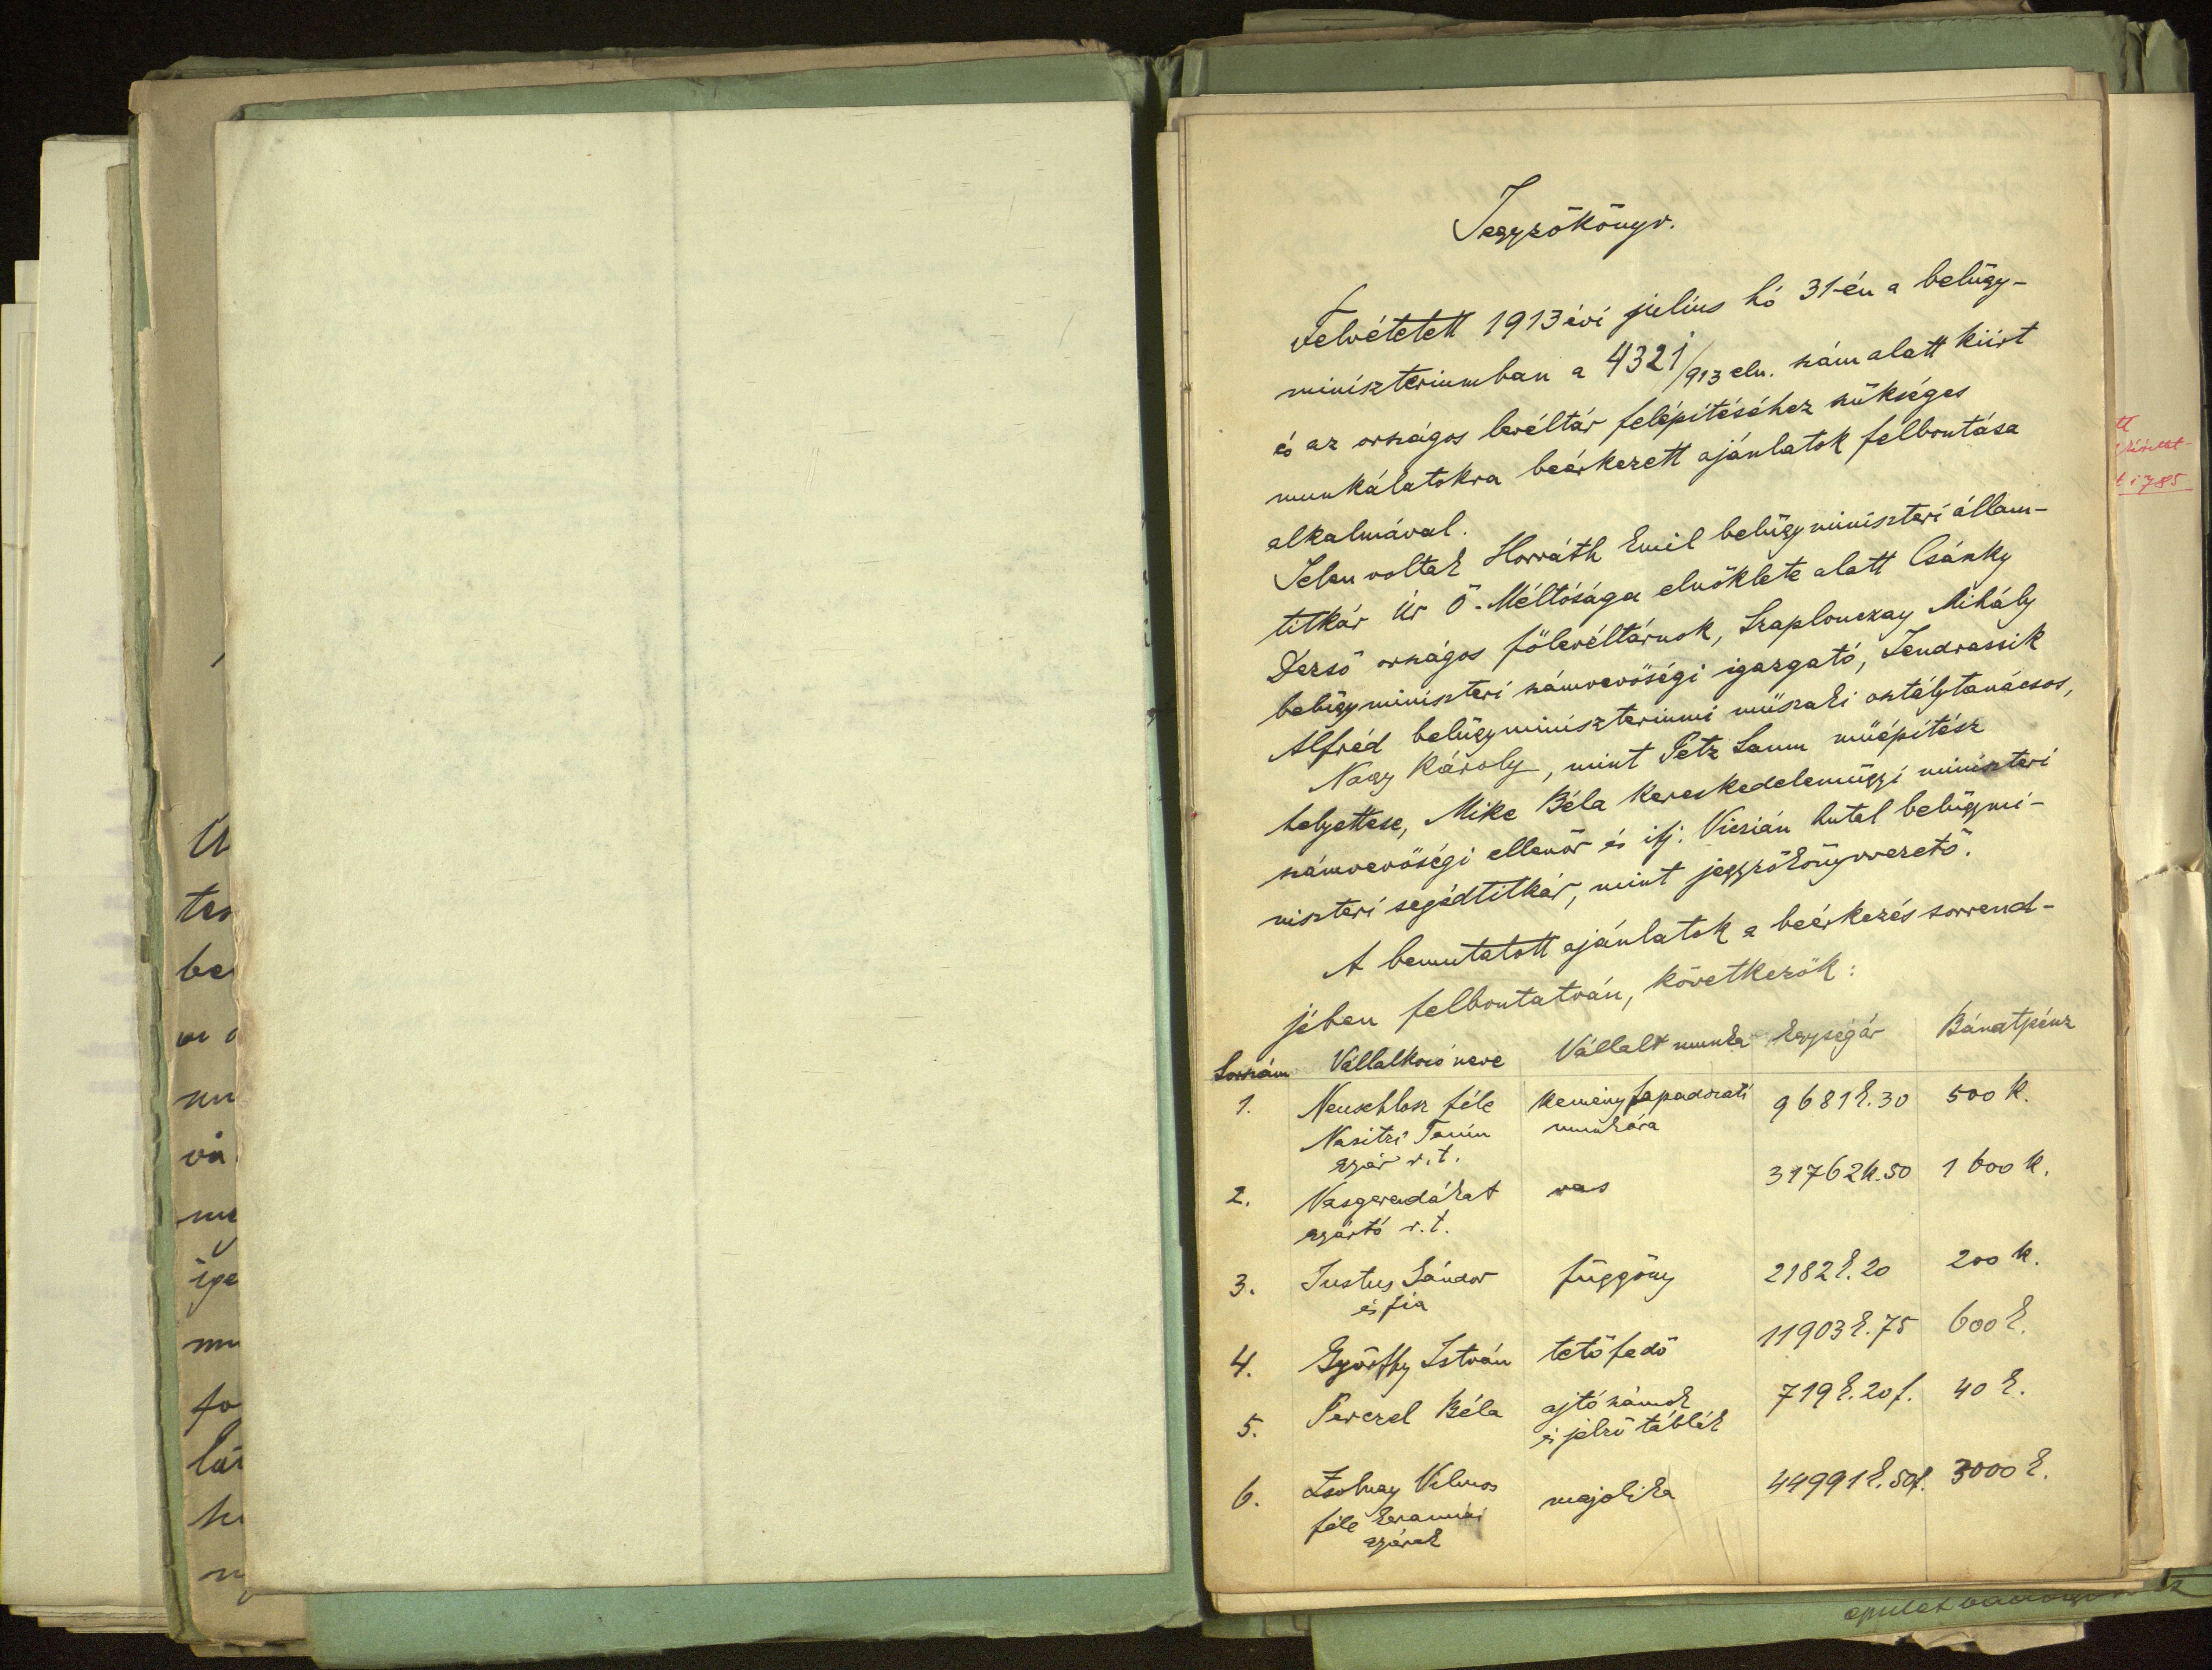 Jegyzőkönyv.
Felvétetett 1913 évi julius hó 31-én a belügy-
miniszteriumban a 4321/913 eln. szám alatt kiirt
és az országos levéltár felépitéséhez szükséges
munkálatokra beérkezett ajánlatok felbontása
alkalmával.
Jelen voltak Horváth Emil belügyminiszteri állam-
titkár Úr Ő-Méltósága elnöklete alatt Csánky
Dezső országos főlevéltárnok, Szaplonczay Mihály
belügyminiszteri számvevőségi igazgató, Jendrassik
Alfréd belügyminiszteriumi műszaki osztálytanácsos,
Nagy Károly, mint Petz Samu műépitész
helyettese, Mike Béla kereskedelemügyi miniszteri
számvevőségi ellenőr és ifj. Viczián Antal belügymi-
niszteri segédtitkár, mint jegyzőkönyvvezető.
A bemutatott ajánlatok a beérkezés sorrend-
jében felbontatván, következők:
Sorszám Vállalkozó neve Vállalt munka Egységár Bánatpénz
1. Neuschlosz féle kemény fapadozati 9681 k. 30 500 K.
Nasitzi Tanin munkára
gyár r.t.
2. Vasgerendákat vas 31762 K. 50 1600 K.
gyártó r.t.
3. Justus Sándor függöny 2182 k. 20 200 K.
és fia
4. Győrffy István tetőfedő 11903 k. 75 600 k.
5. Perczel Béla ajtó számok 719 k. 20 f. 40 k.
és jelző táblák
6. Zsolnay Vilmos majolika 44991 k. 50 f. 3000 k.
féle keramiai
gyárak
tt
t i 785
U
be
mu
fo